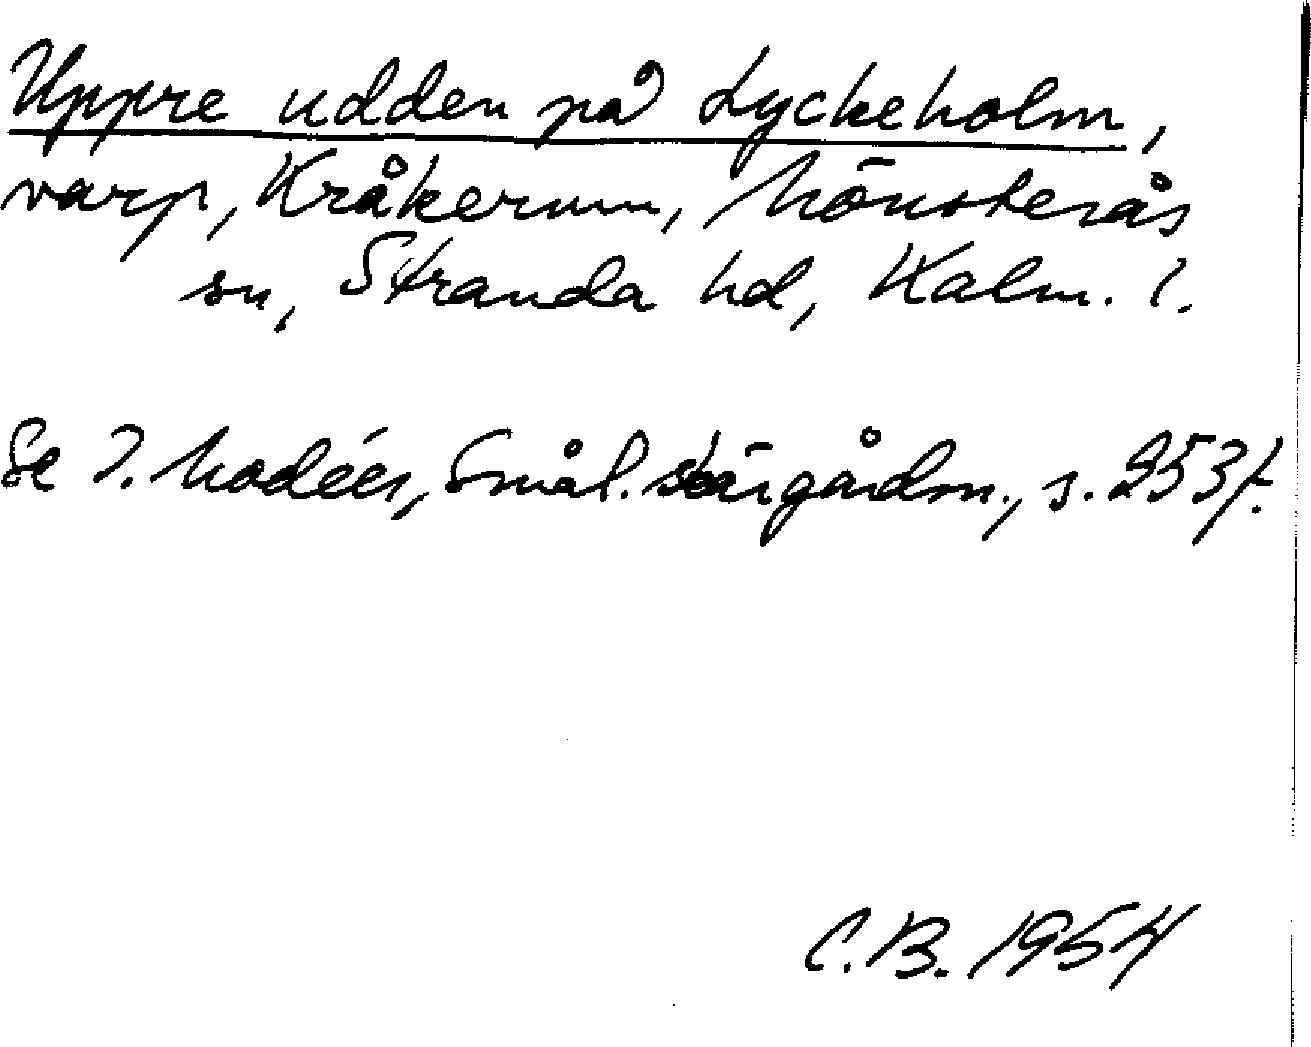 Uppre udden på Lyckeholm,
varp, Kråkerum, Mönsterås
sn, Stranda hd, Kalm. l.
Se I. Modéer, Smål. skärgårdsn., s. 253 f.
C.B. 1954